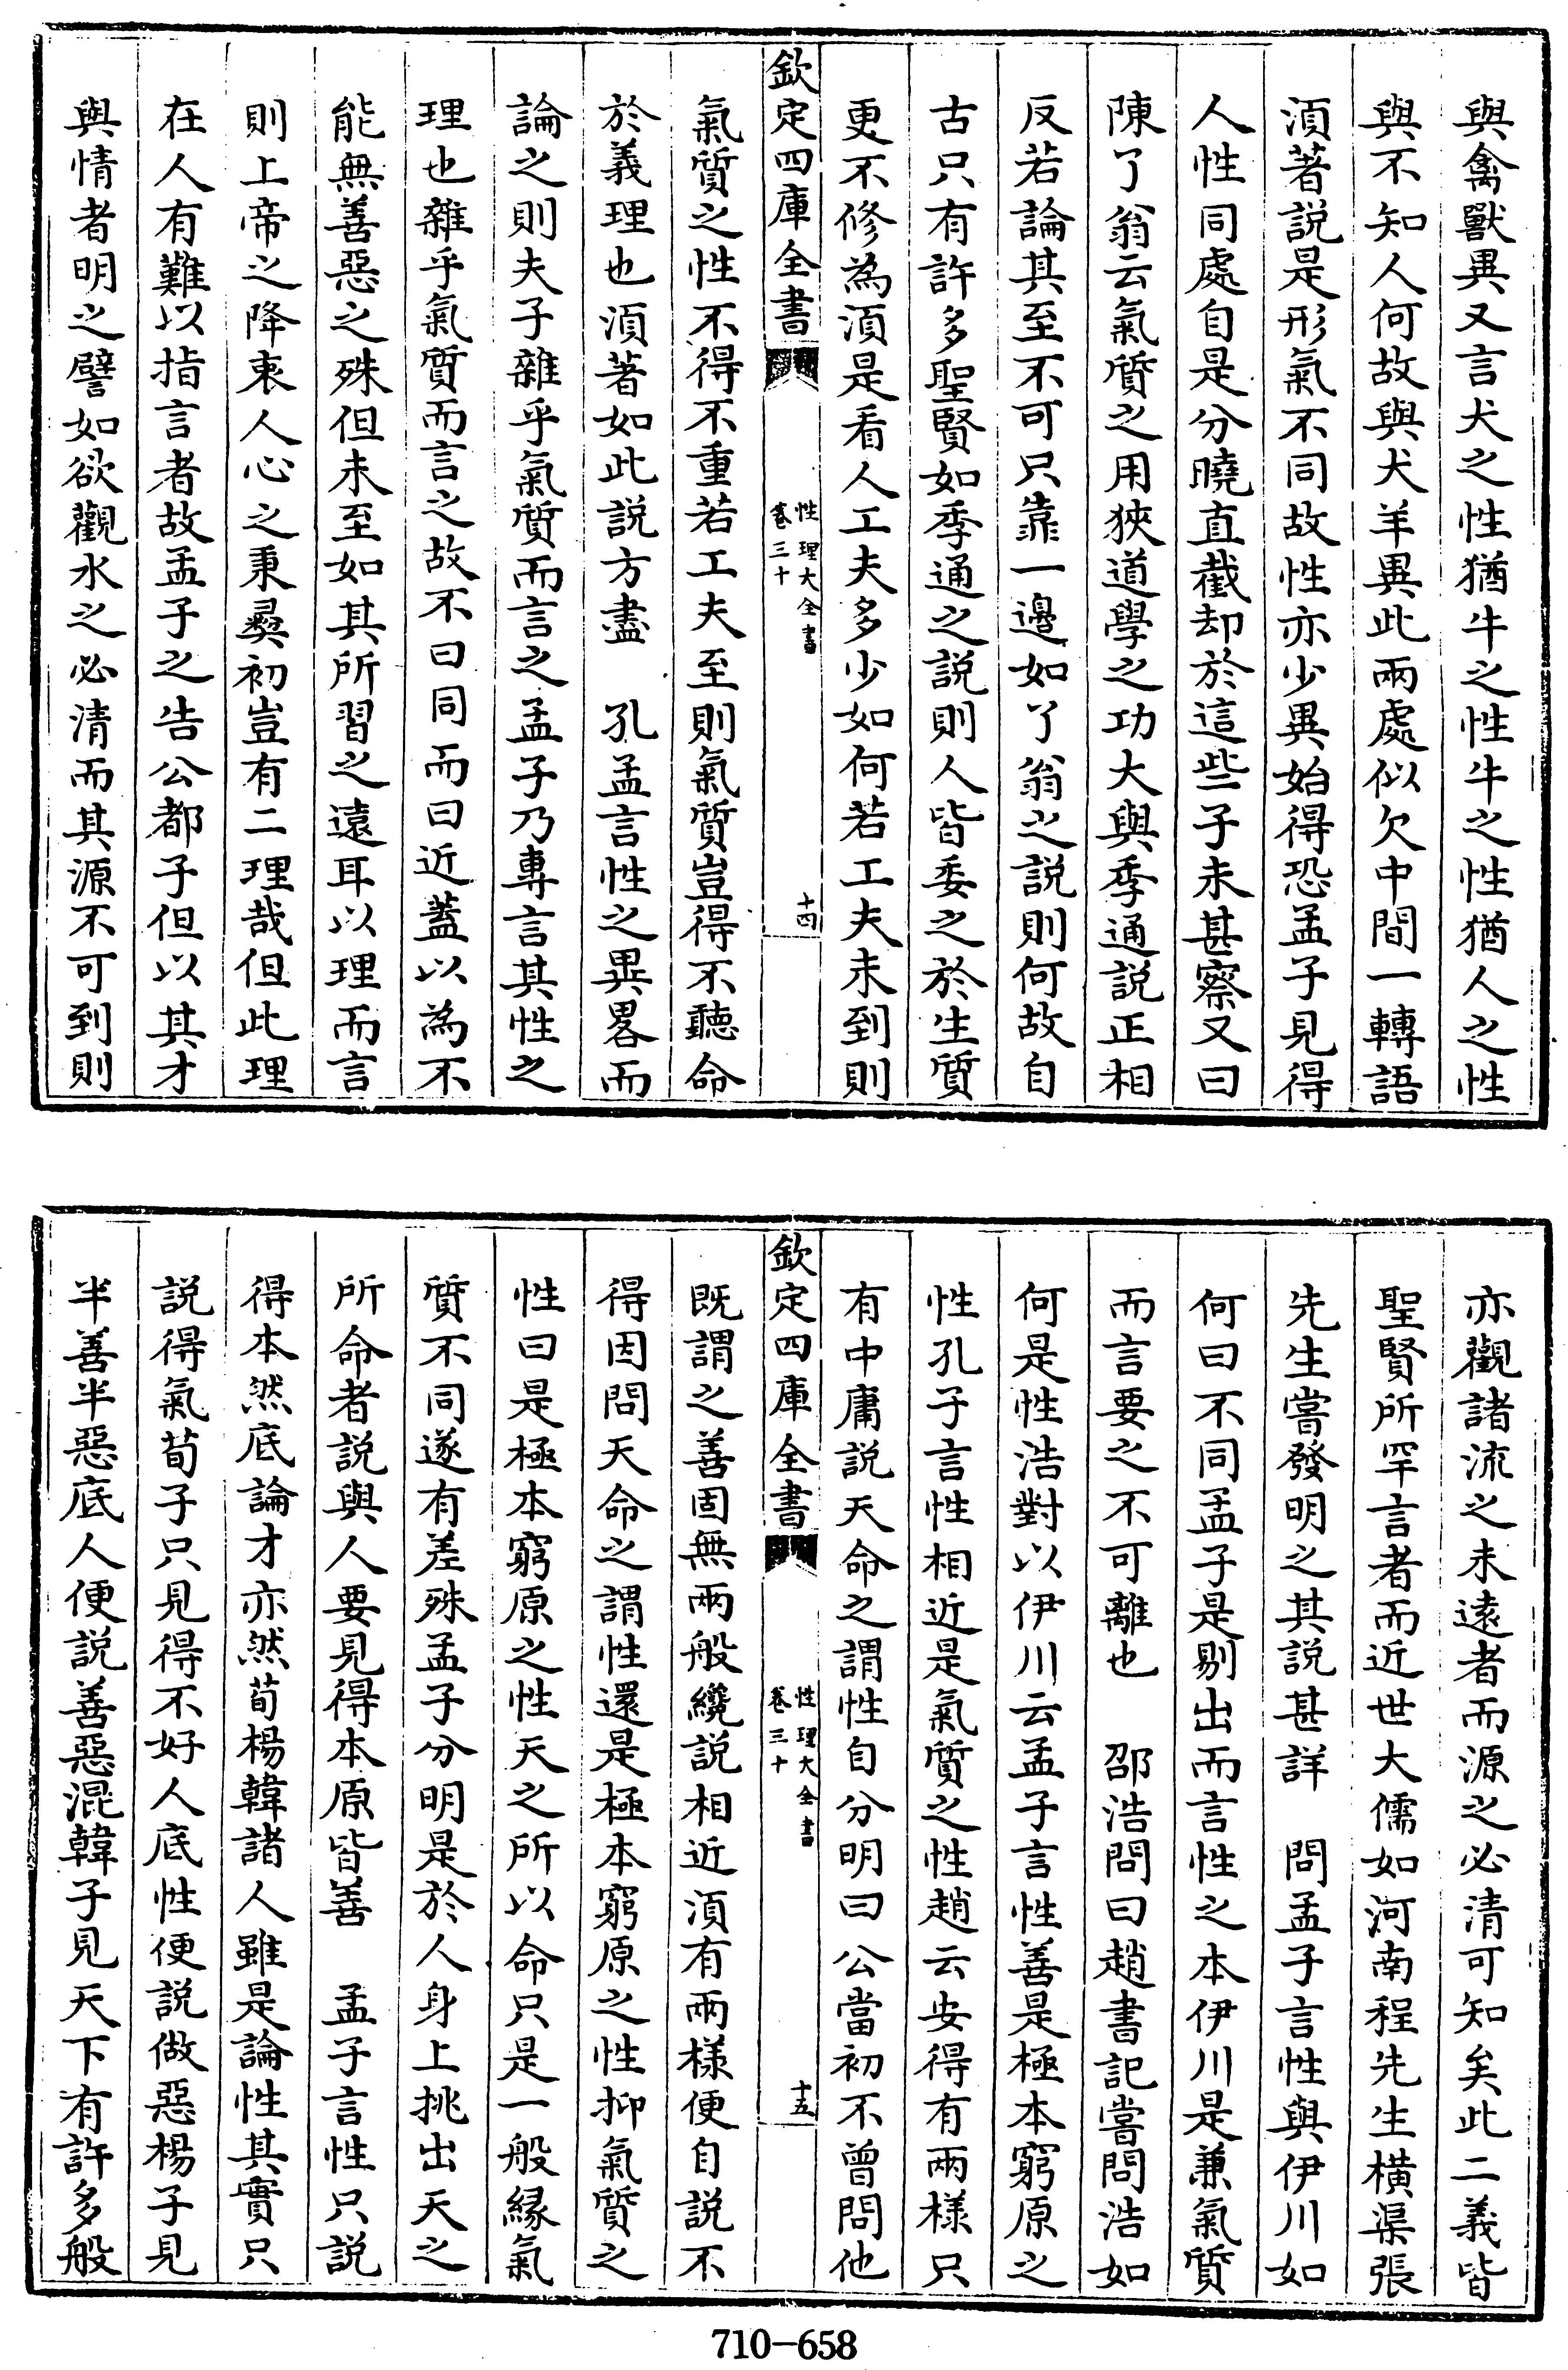 與禽獸異又言犬之性猶牛之性牛之性猶人之性
與不知人何故與犬羊異此兩處似欠中間一轉語
須著説是形氣不同故性亦少異始得恐孟子見得
人性同處自是分曉直截却於這些子未甚察又曰
陳了翁云氣質之用狹道學之功大與季通説正相
反若論其至不可只靠一邊如了翁之説則何故自
古只有許多聖賢如季通之説則人皆委之於生質
更不修為須是看人工夫多少如何若工夫未到則
欽定四庫全書
性理大全書
卷三十
十四
氣質之性不得不重若工夫至則氣質豈得不聽命
於義理也須著如此説方盡　孔孟言性之異畧而
論之則夫子雜乎氣質而言之孟子乃專言其性之
理也雜乎氣質而言之故不曰同而曰近蓋以為不
能無善惡之殊但未至如其所習之遠耳以理而言
則上帝之降衷人心之秉彛初豈有二理哉但此理
在人有難以指言者故孟子之告公都子但以其才
與情者明之譬如欲觀水之必清而其源不可到則
亦觀諸流之未遠者而源之必清可知矣此二義皆
聖賢所罕言者而近世大儒如河南程先生横渠張
先生嘗發明之其説甚詳　問孟子言性與伊川如
何曰不同孟子是剔出而言性之本伊川是兼氣質
而言要之不可離也　邵浩問曰趙書記嘗問浩如
何是性浩對以伊川云孟子言性善是極本窮原之
性孔子言性相近是氣質之性趙云安得有兩様只
有中庸説天命之謂性自分明曰公當初不曾問他
欽定四庫全書
性理大全書
卷三十
十五
既謂之善固無兩般纔説相近須有兩様便自説不
得因問天命之謂性還是極本窮原之性抑氣質之
性曰是極本窮原之性天之所以命只是一般縁氣
質不同遂有差殊孟子分明是於人身上挑出天之
所命者説與人要見得本原皆善　孟子言性只説
得本然底論才亦然荀楊韓諸人雖是論性其實只
説得氣荀子只見得不好人底性便説做惡楊子見
半善半惡底人便説善惡混韓子見天下有許多般
710-658